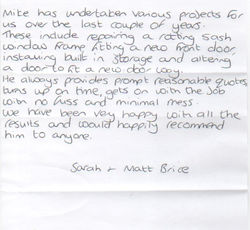 Mike has undertaken various projects for
us over the last couple of years.
These include repairing a rotting sash
window frame fitting a new front door,
installing built in storage and altering
a door to fit a new door way.
He always provides prompt reasonable quotes,
turns up on time, gets on with the job
with no fuss and minimal mess.
We have been very happy with all the
results and would happily recommend
him to anyone.
Sarah + Matt Brice